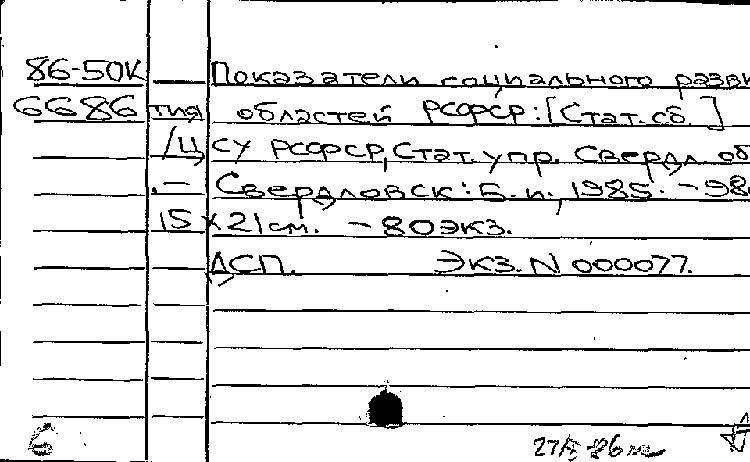 86-50К Показатели социального разви
6686 тия областей РСФСР: [Стат. сб. ]
/ЦСУ РСФСР, Стат. упр. Свердл. об
.— Свердловск: Б. и., 1985. — 98
15 х 21 см. — 80 экз.
ДСП. Экз. N 000077.
6